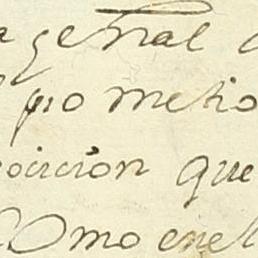 genal
pio metio
ocicion que
Como enel